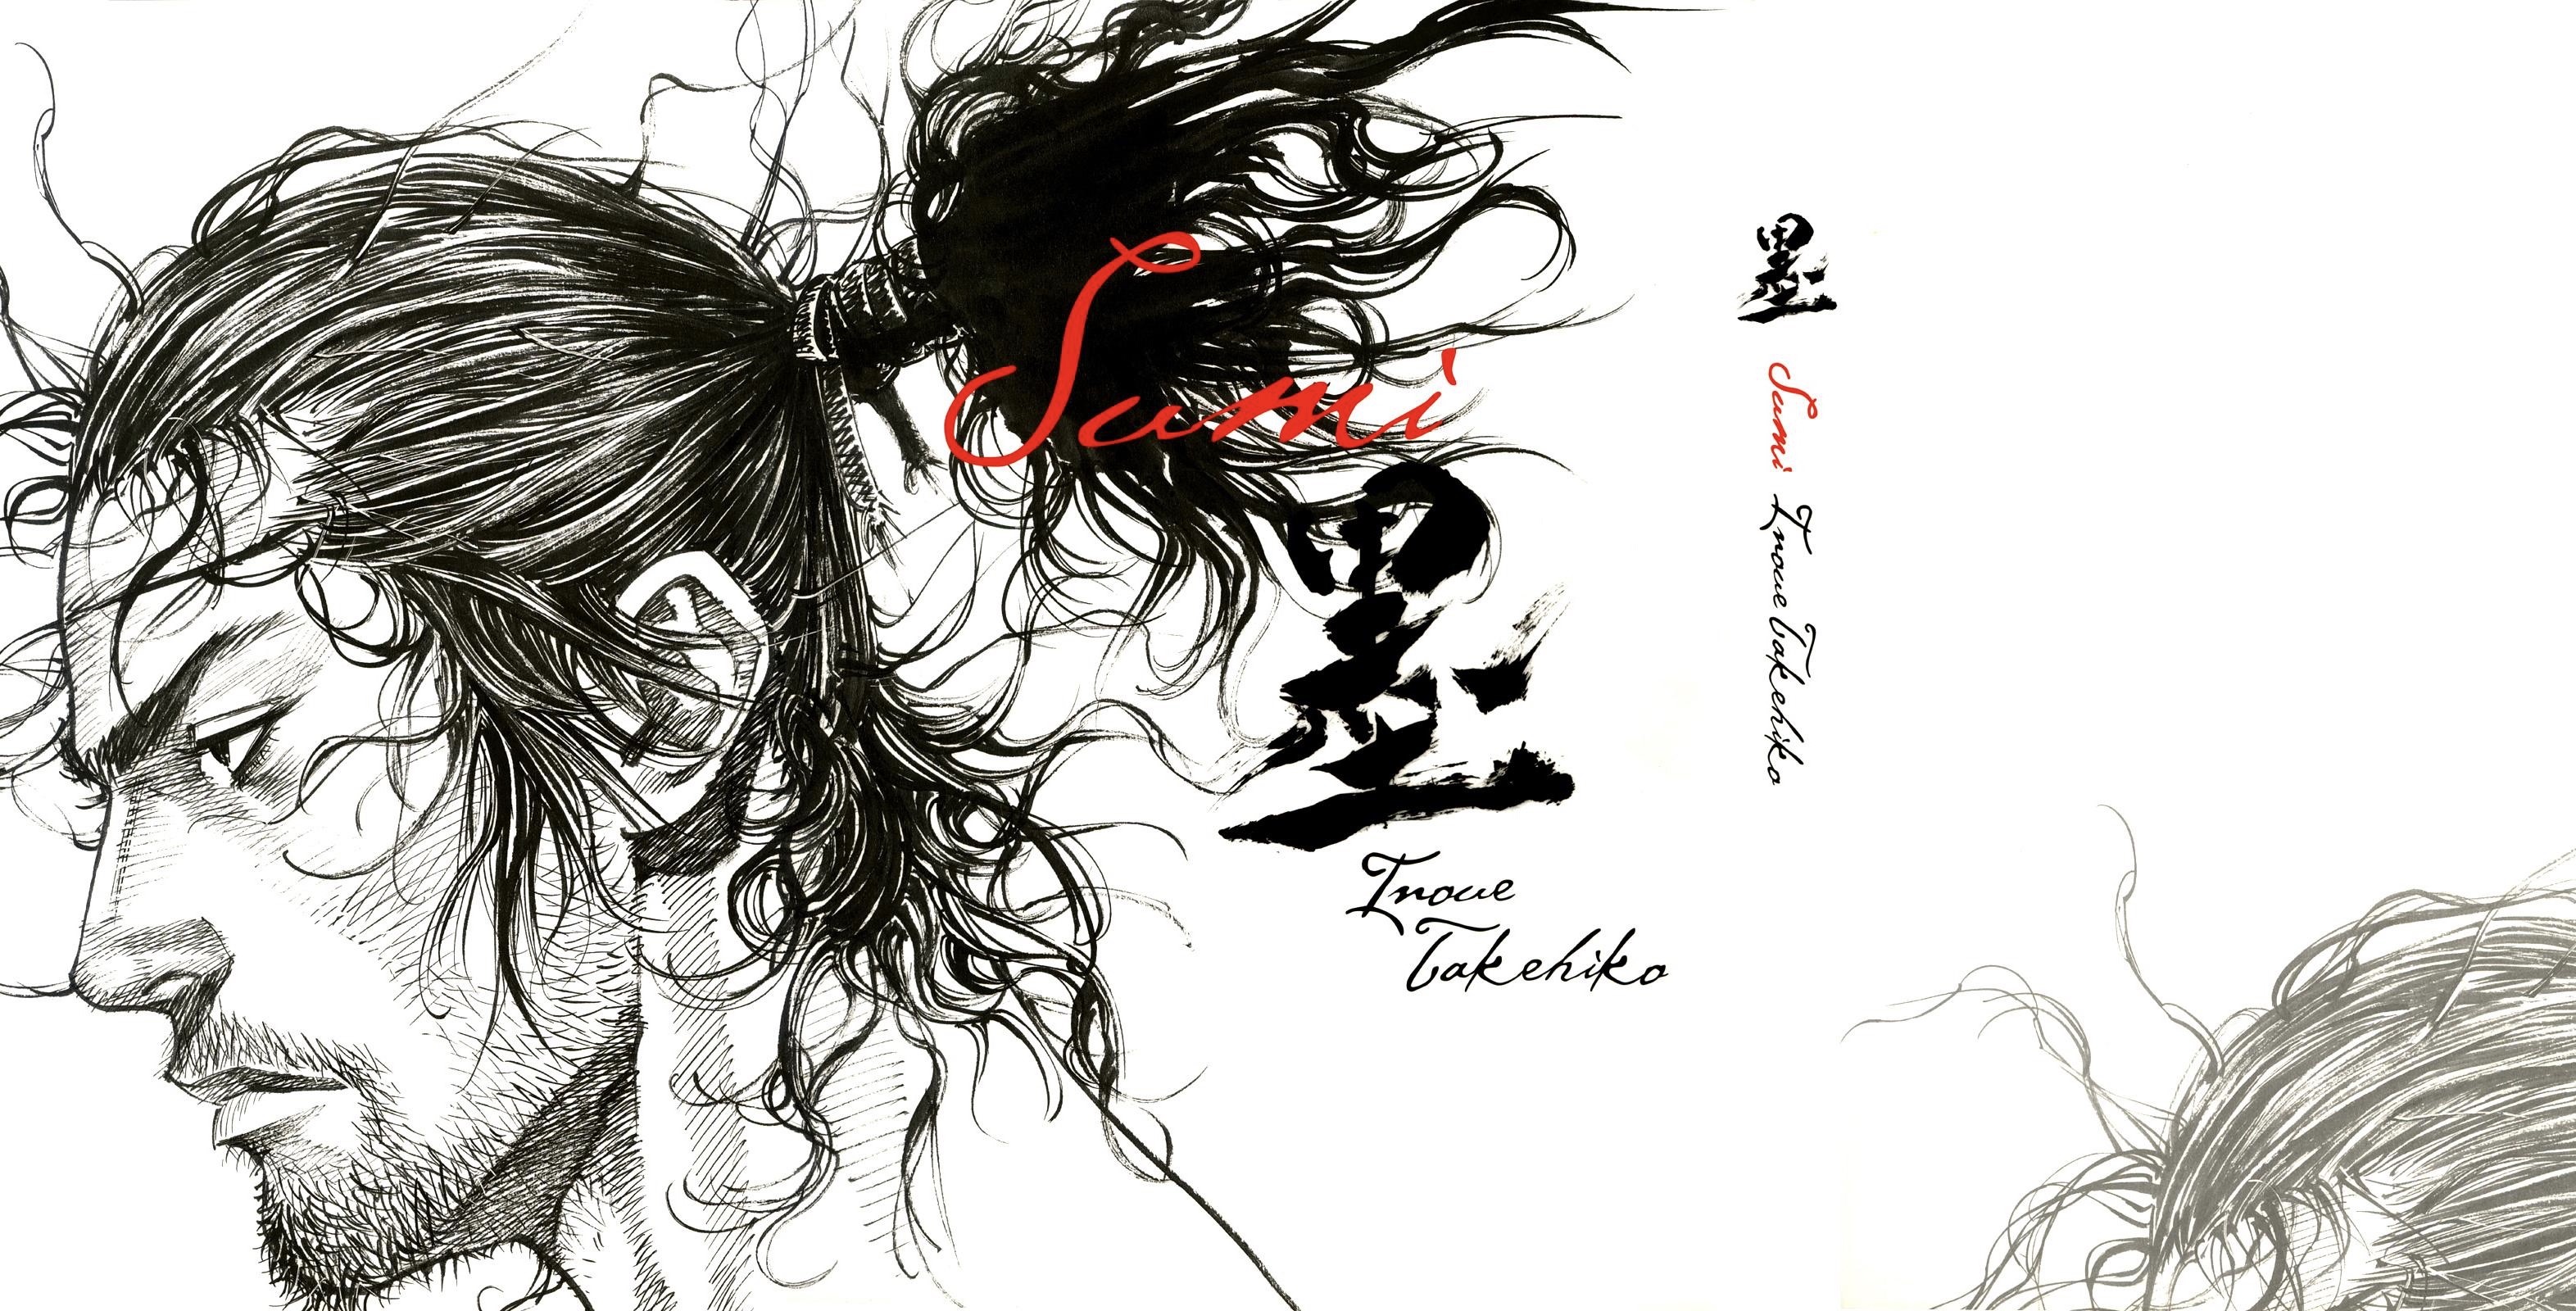 Sumi
墨
Inoue
Takehiko
墨 Sumi Inoue Takehiko